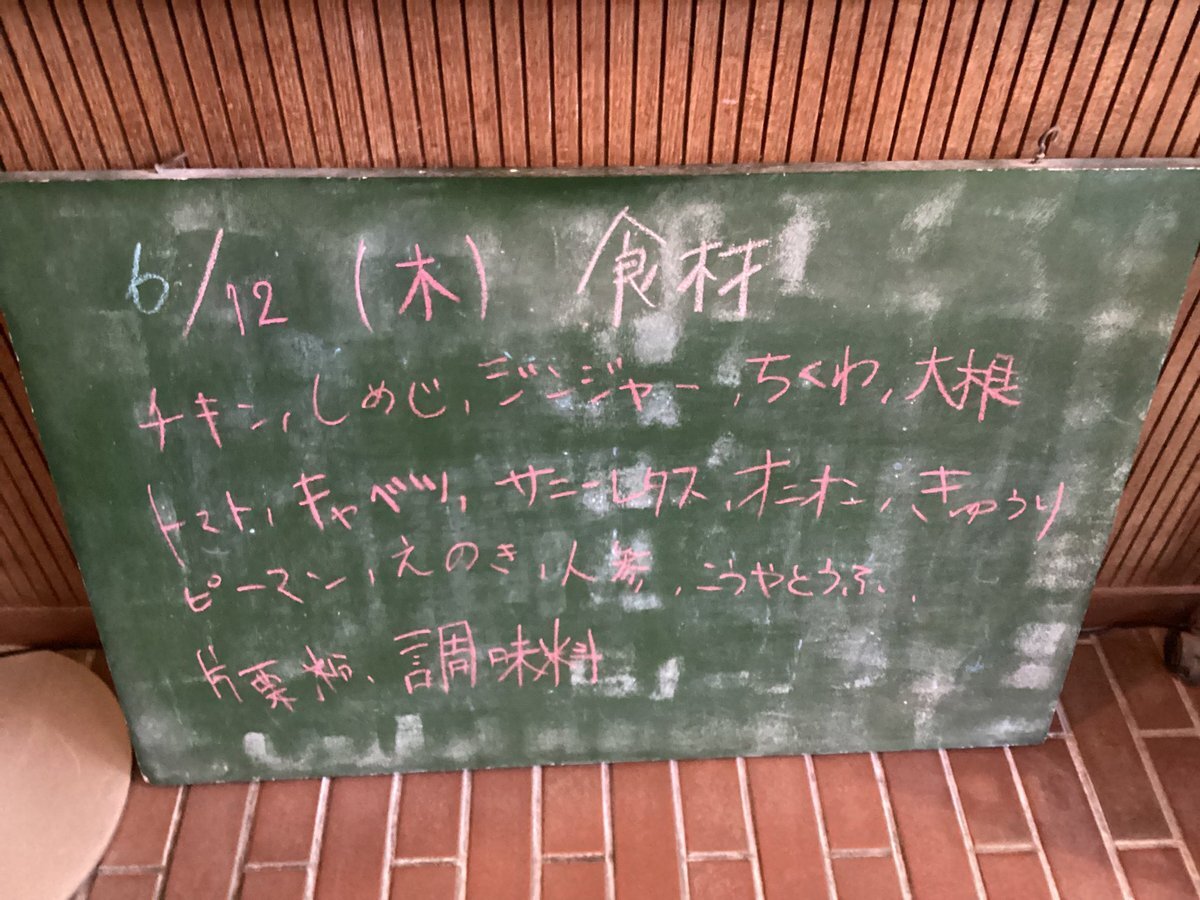 6/12 (木) 食材
チキン, しめじ, ジンジャー, ちくわ, 大根
トマト, キャベツ, サニーレタス, オニオン, きゅうり
ピーマン, えのき, 人参, こうやとうふ,
片栗粉、調味料